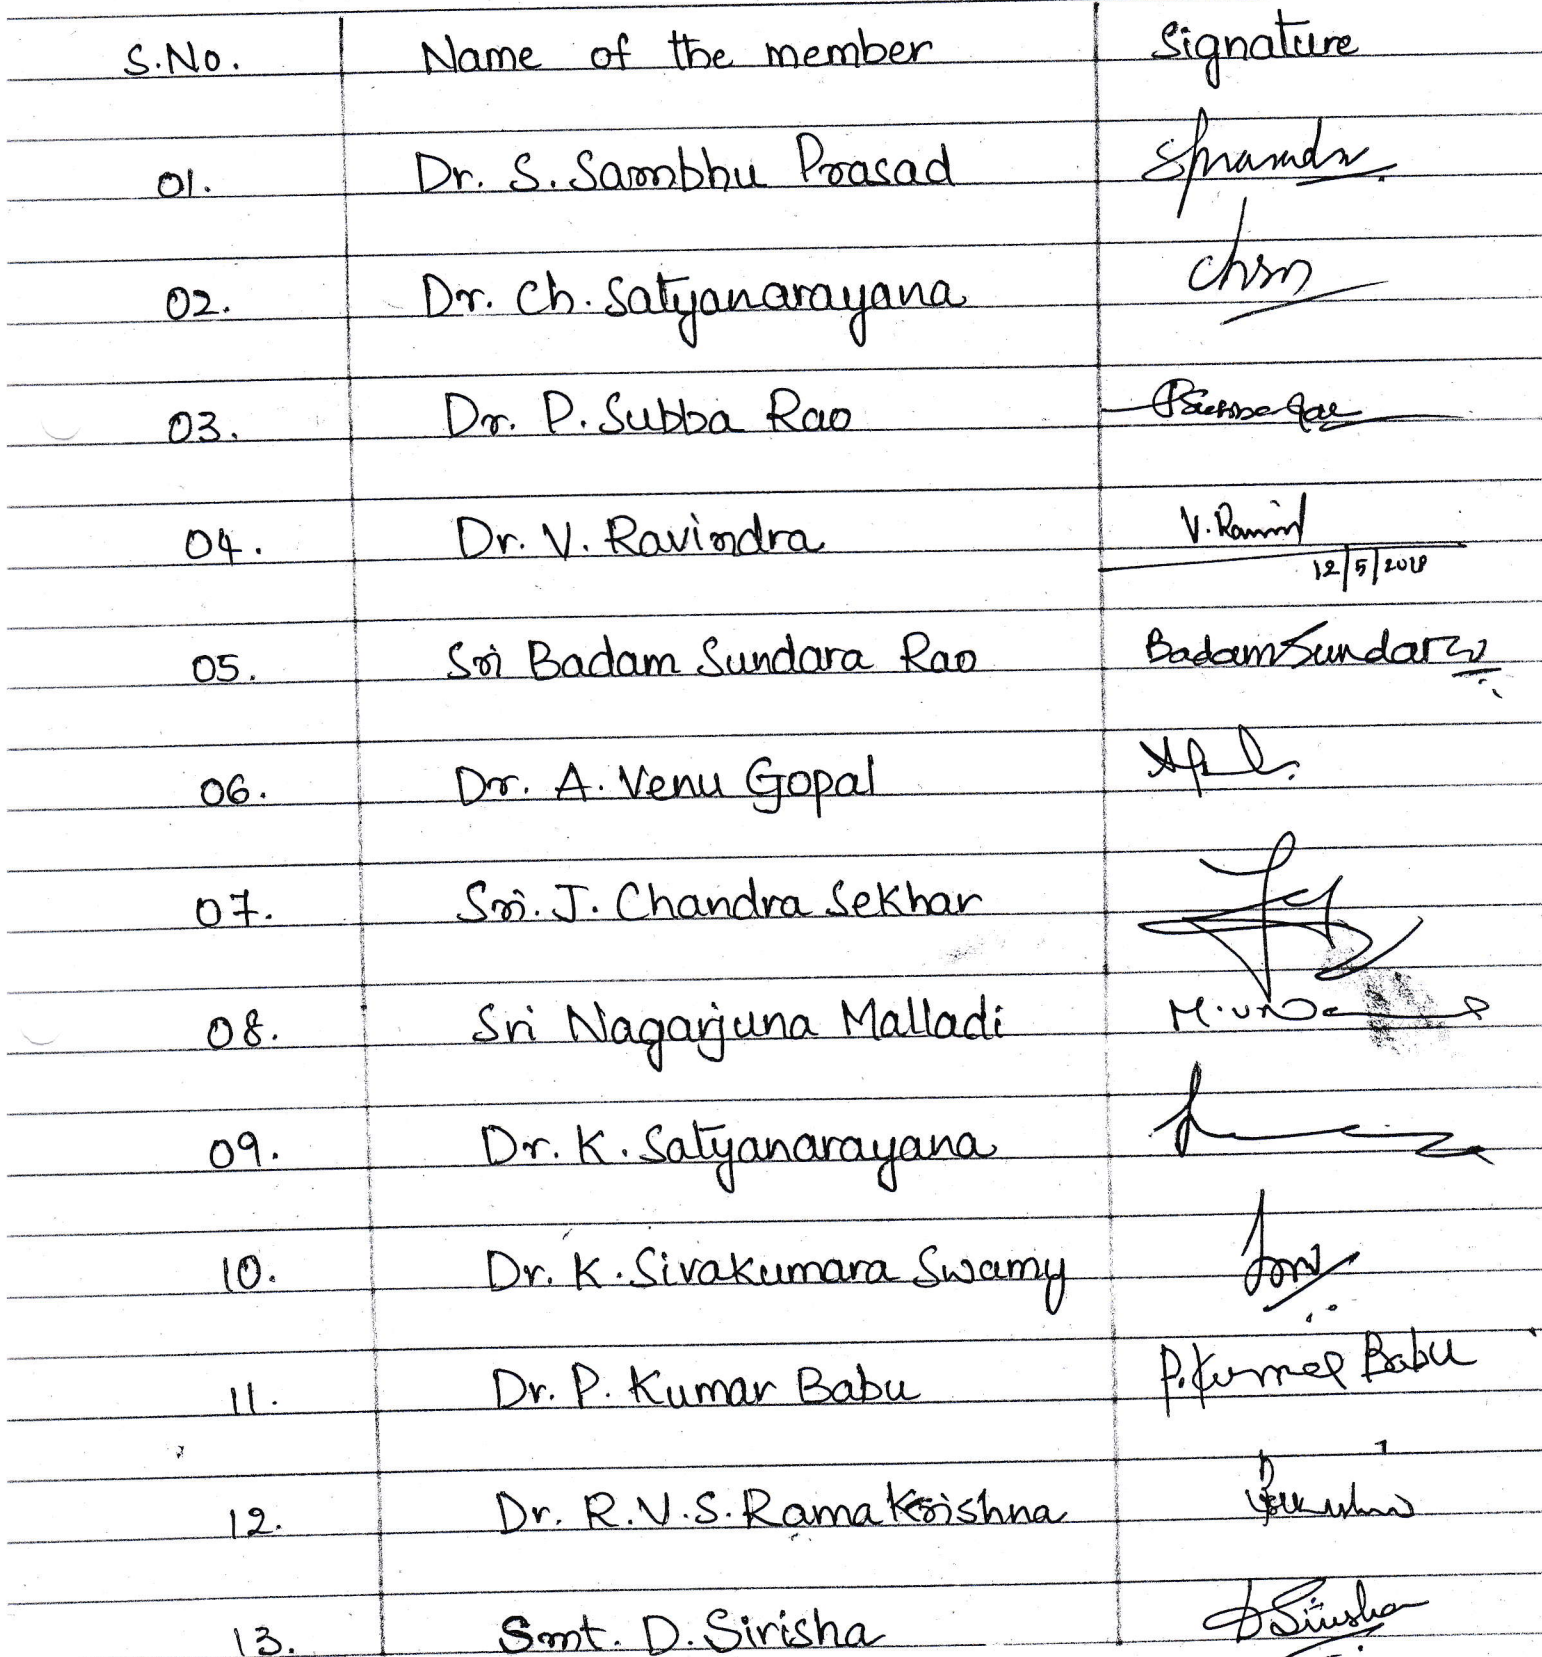 S.No. Name of the member Signature
01. Dr. S. Sambhu Prasad
02. Dr. Ch. Satyanarayana Chsn
03. Dr. P. Subba Rao
04. Dr. V. Ravindra V.
12/5/2018
05. Sri Badam Sundara Rao Badam Sundar
06. Dr. A. Venu Gopal
07. Sri. J. Chandra Sekhar
08. Sri Nagarjuna Malladi
09. Dr. K. Satyanarayana
10. Dr. K. Sivakumara Swamy
11. Dr. P. Kumar Babu P. Kumar Babu
12. Dr. R.V.S. Rama Krishna
13. Smt. D. Sirisha D Sirisha